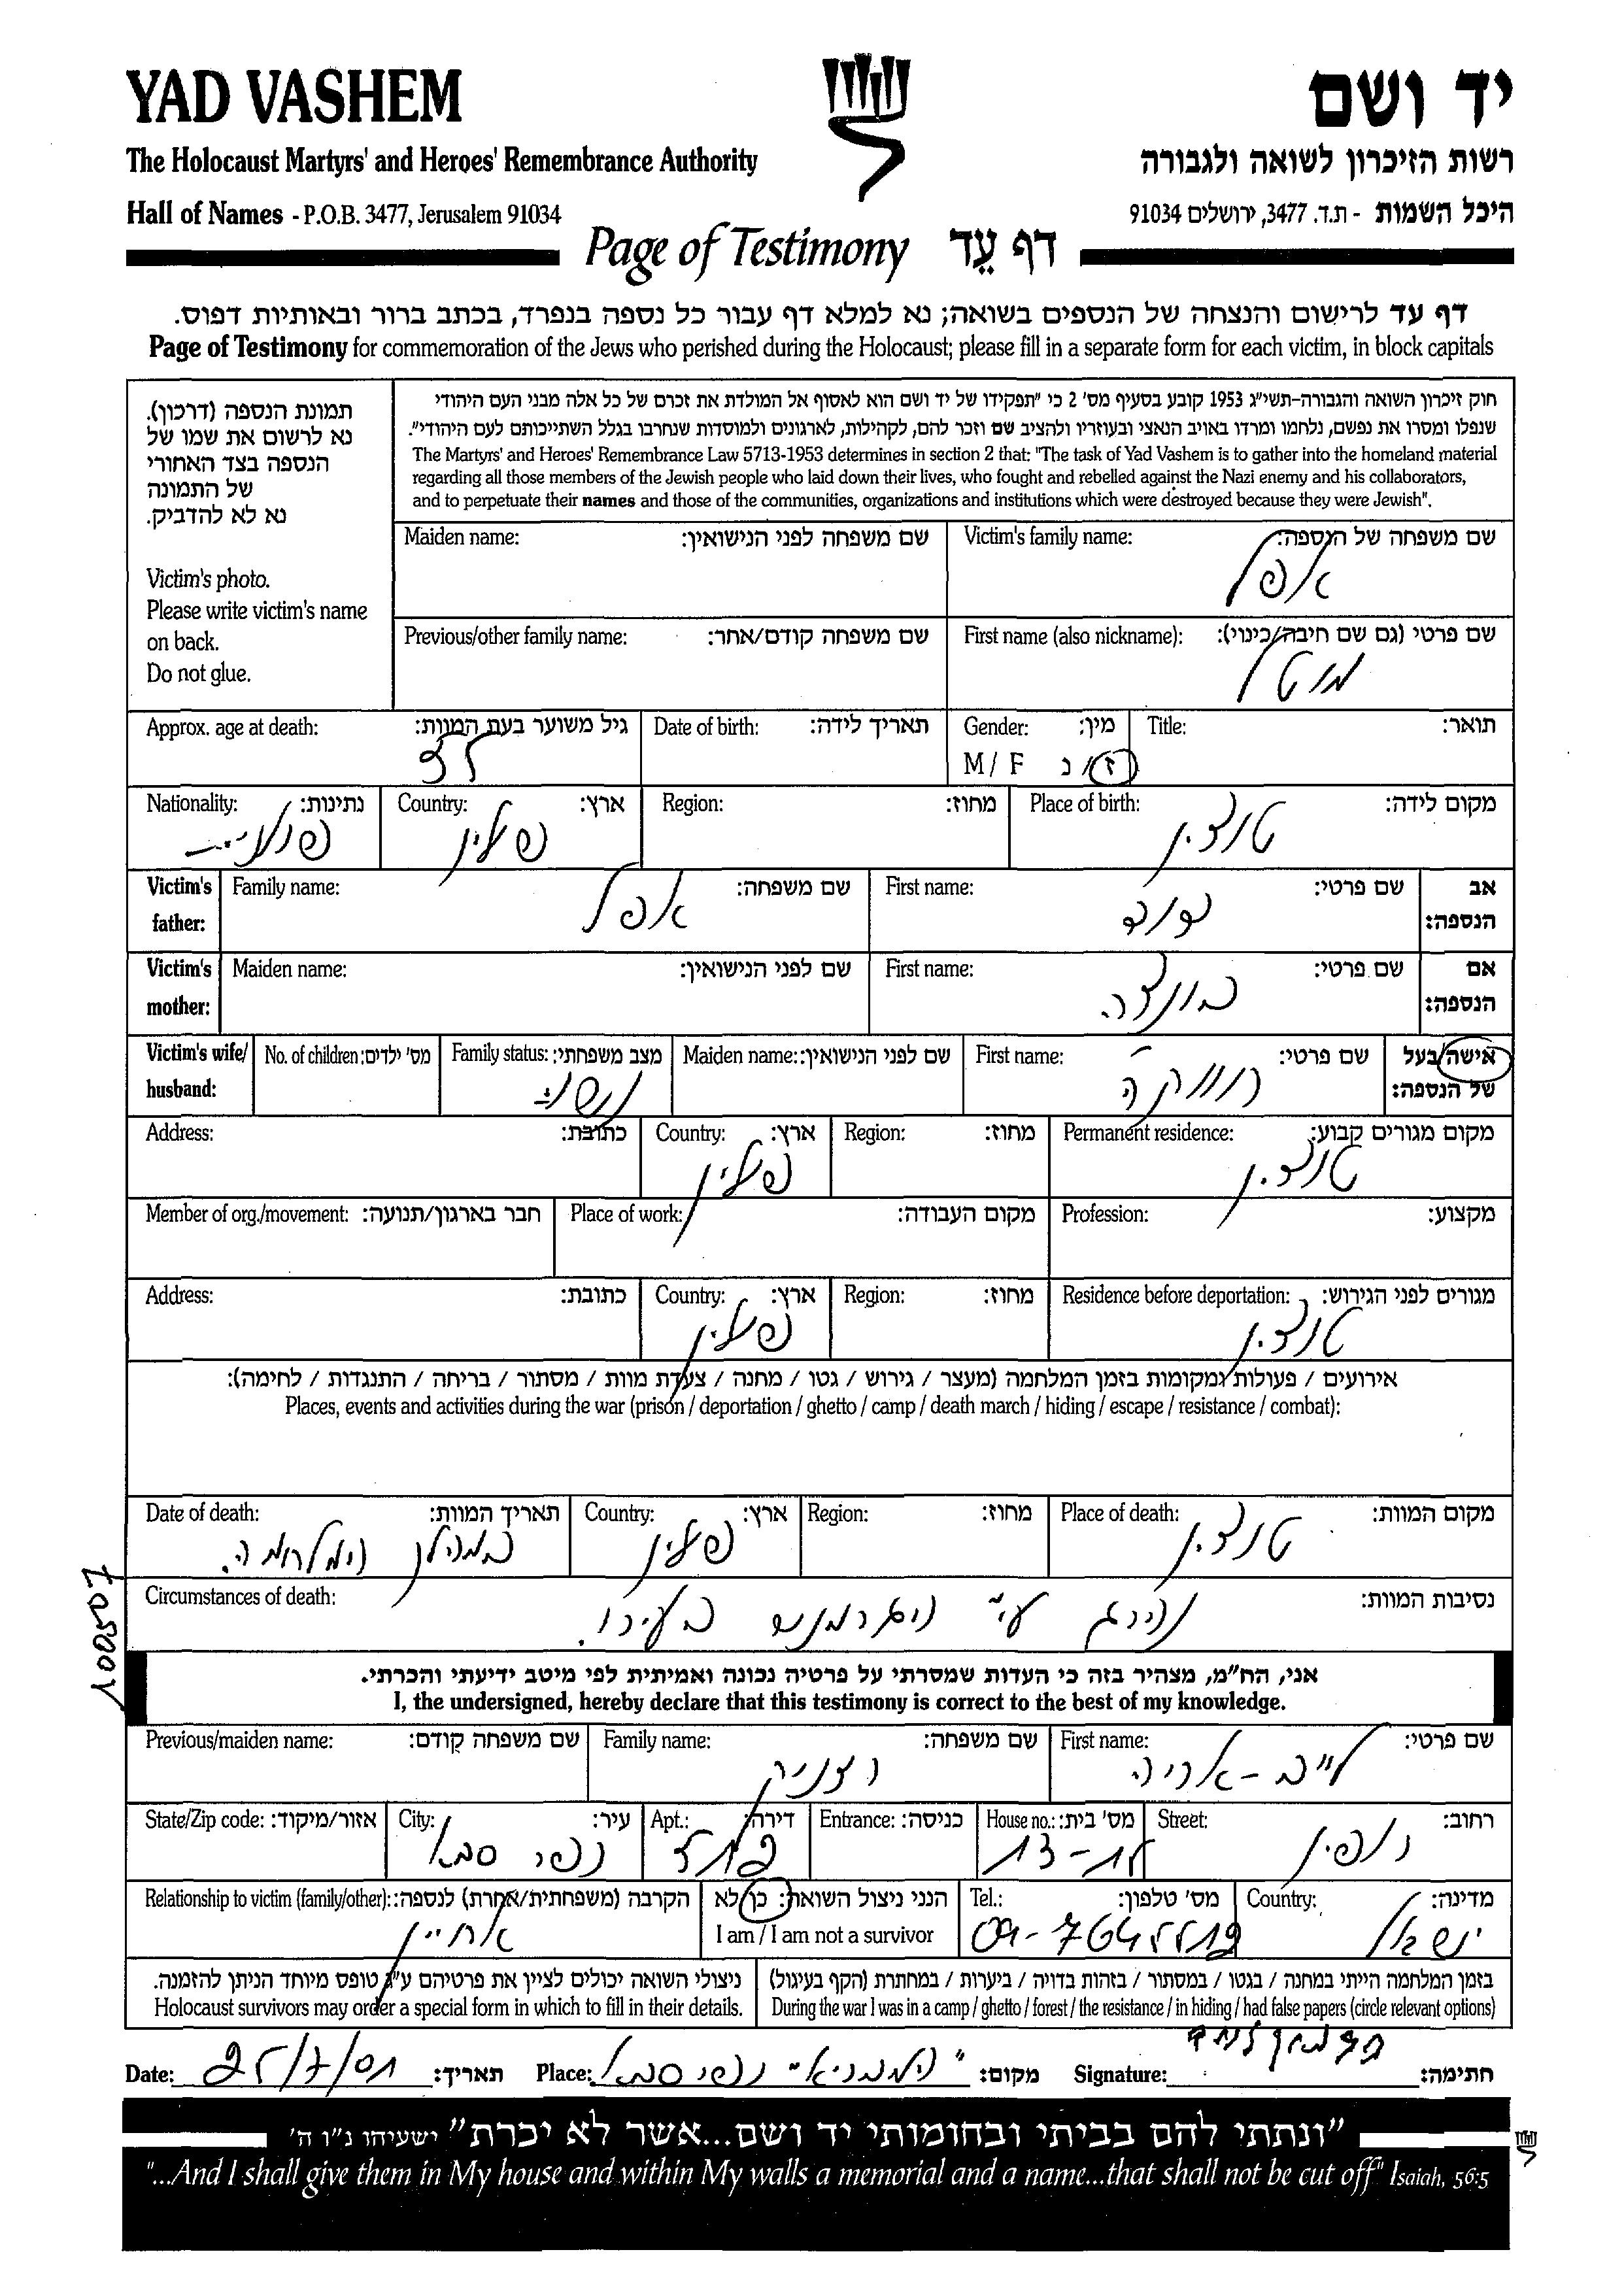 YAD VASHEM
יד ושם
The Holocaust Martyrs' and Heroes' Remembrance Authority
רשות הזיכרון לשואה ולגבורה
Hall of Names - P.O.B. 3477, Jerusalem 91034
היכל השמות - ת.ד. 3477, ירושלים 91034
Page of Testimony דף עֵד
דף עד לרישום והנצחה של הנספים בשואה; נא למלא דף עבור כל נספה בנפרד, בכתב ברור ובאותיות דפוס.
Page of Testimony for commemoration of the Jews who perished during the Holocaust; please fill in a separate form for each victim, in block capitals
תמונת הנספה (דרכון).
נא לרשום את שמו של
הנספה בצד האחורי
של התמונה
נא לא להדביק.
Victim's photo.
Please write victim's name
on back.
Do not glue.
חוק זיכרון השואה והגבורה-תשי"ג 1953 קובע בסעיף מס' 2 כי "תפקידו של יד ושם הוא לאסוף אל המולדת את זכרם של כל אלה מבני העם היהודי
שנפלו ומסרו את נפשם, נלחמו ומרדו באויב הנאצי ובעוזריו ולהציב שם וזכר להם, לקהילות, לארגונים ולמוסדות שנחרבו בגלל השתייכותם לעם היהודי".
The Martyrs' and Heroes' Remembrance Law 5713-1953 determines in section 2 that: "The task of Yad Vashem is to gather into the homeland material
regarding all those members of the Jewish people who laid down their lives, who fought and rebelled against the Nazi enemy and his collaborators,
and to perpetuate their names and those of the communities, organizations and institutions which were destroyed because they were Jewish".
Victim's family name: שם משפחה של הנספה:
אפל
Maiden name: שם משפחה לפני הנישואין:
First name (also nickname): שם פרטי (גם שם חיבה/כינוי):
מוטל
Previous/other family name: שם משפחה קודם/אחר:
Title: תואר:
Gender: מין:
M / F ז / נ
Date of birth: תאריך לידה:
Approx. age at death: גיל משוער בעת המוות:
35
Place of birth: מקום לידה:
טוצ'ין
Region: מחוז:
Country: ארץ:
פולין
Nationality: נתינות:
פולנית
Victim's father: אב הנספה:
First name: שם פרטי:
דוד
Family name: שם משפחה:
אפל
Victim's mother: אם הנספה:
First name: שם פרטי:
בונצה
Maiden name: שם לפני הנישואין:
Victim's wife/ husband: אישה/בעל של הנספה:
First name: שם פרטי:
רווקה
Maiden name: שם לפני הנישואין:
Family status: מצב משפחתי:
נשוי
No. of children: מס' ילדים:
Permanent residence: מקום מגורים קבוע:
טוצ'ין
Region: מחוז:
Country: ארץ:
פולין
Address: כתובת:
Profession: מקצוע:
Place of work: מקום העבודה:
Member of org./movement: חבר בארגון/תנועה:
Residence before deportation: מגורים לפני הגירוש:
טוצ'ין
Region: מחוז:
Country: ארץ:
פולין
Address: כתובת:
אירועים / פעולות ומקומות בזמן המלחמה (מעצר / גירוש / גטו / מחנה / צעדת מוות / מסתור / בריחה / התנגדות / לחימה):
Places, events and activities during the war (prison / deportation / ghetto / camp / death march / hiding / escape / resistance / combat):
Place of death: מקום המוות:
טוצ'ין
Region: מחוז:
Country: ארץ:
פולין
Date of death: תאריך המוות:
במהלך המלחמה.
Circumstances of death: נסיבות המוות:
נהרג ע"י הגרמנים בעירו.
100507
אני, הח"מ, מצהיר בזה כי העדות שמסרתי על פרטיה נכונה ואמיתית לפי מיטב ידיעתי והכרתי.
I, the undersigned, hereby declare that this testimony is correct to the best of my knowledge.
First name: שם פרטי:
לייב-אריה
Family name: שם משפחה:
רצניק
Previous/maiden name: שם משפחה קודם:
Street: רחוב:
House no.: מס' בית:
Entrance: כניסה:
Apt.: דירה:
City: עיר:
כפר סבא
State/Zip code: אזור/מיקוד:
Country: מדינה:
ישראל
Tel.: מס' טלפון:
הנני ניצול השואה: כן/לא
I am / I am not a survivor
Relationship to victim (family/other): הקרבה (משפחתית/אחרת) לנספה:
אחיין
בזמן המלחמה הייתי במחנה / בגטו / במסתור / בזהות בדויה / ביערות / במחתרת (הקף בעיגול)
During the war I was in a camp / ghetto / forest / the resistance / in hiding / had false papers (circle relevant options)
ניצולי השואה יכולים לציין את פרטיהם ע"ג טופס מיוחד הניתן להזמנה.
Holocaust survivors may order a special form in which to fill in their details.
Signature: חתימה:
Place: מקום: כפר סבא
Date: 25/7/01 תאריך:
"ונתתי להם בביתי ובחומותי יד ושם...אשר לא יכרת" ישעיהו נ"ו ה'
"...And I shall give them in My house and within My walls a memorial and a name...that shall not be cut off" Isaiah, 56:5